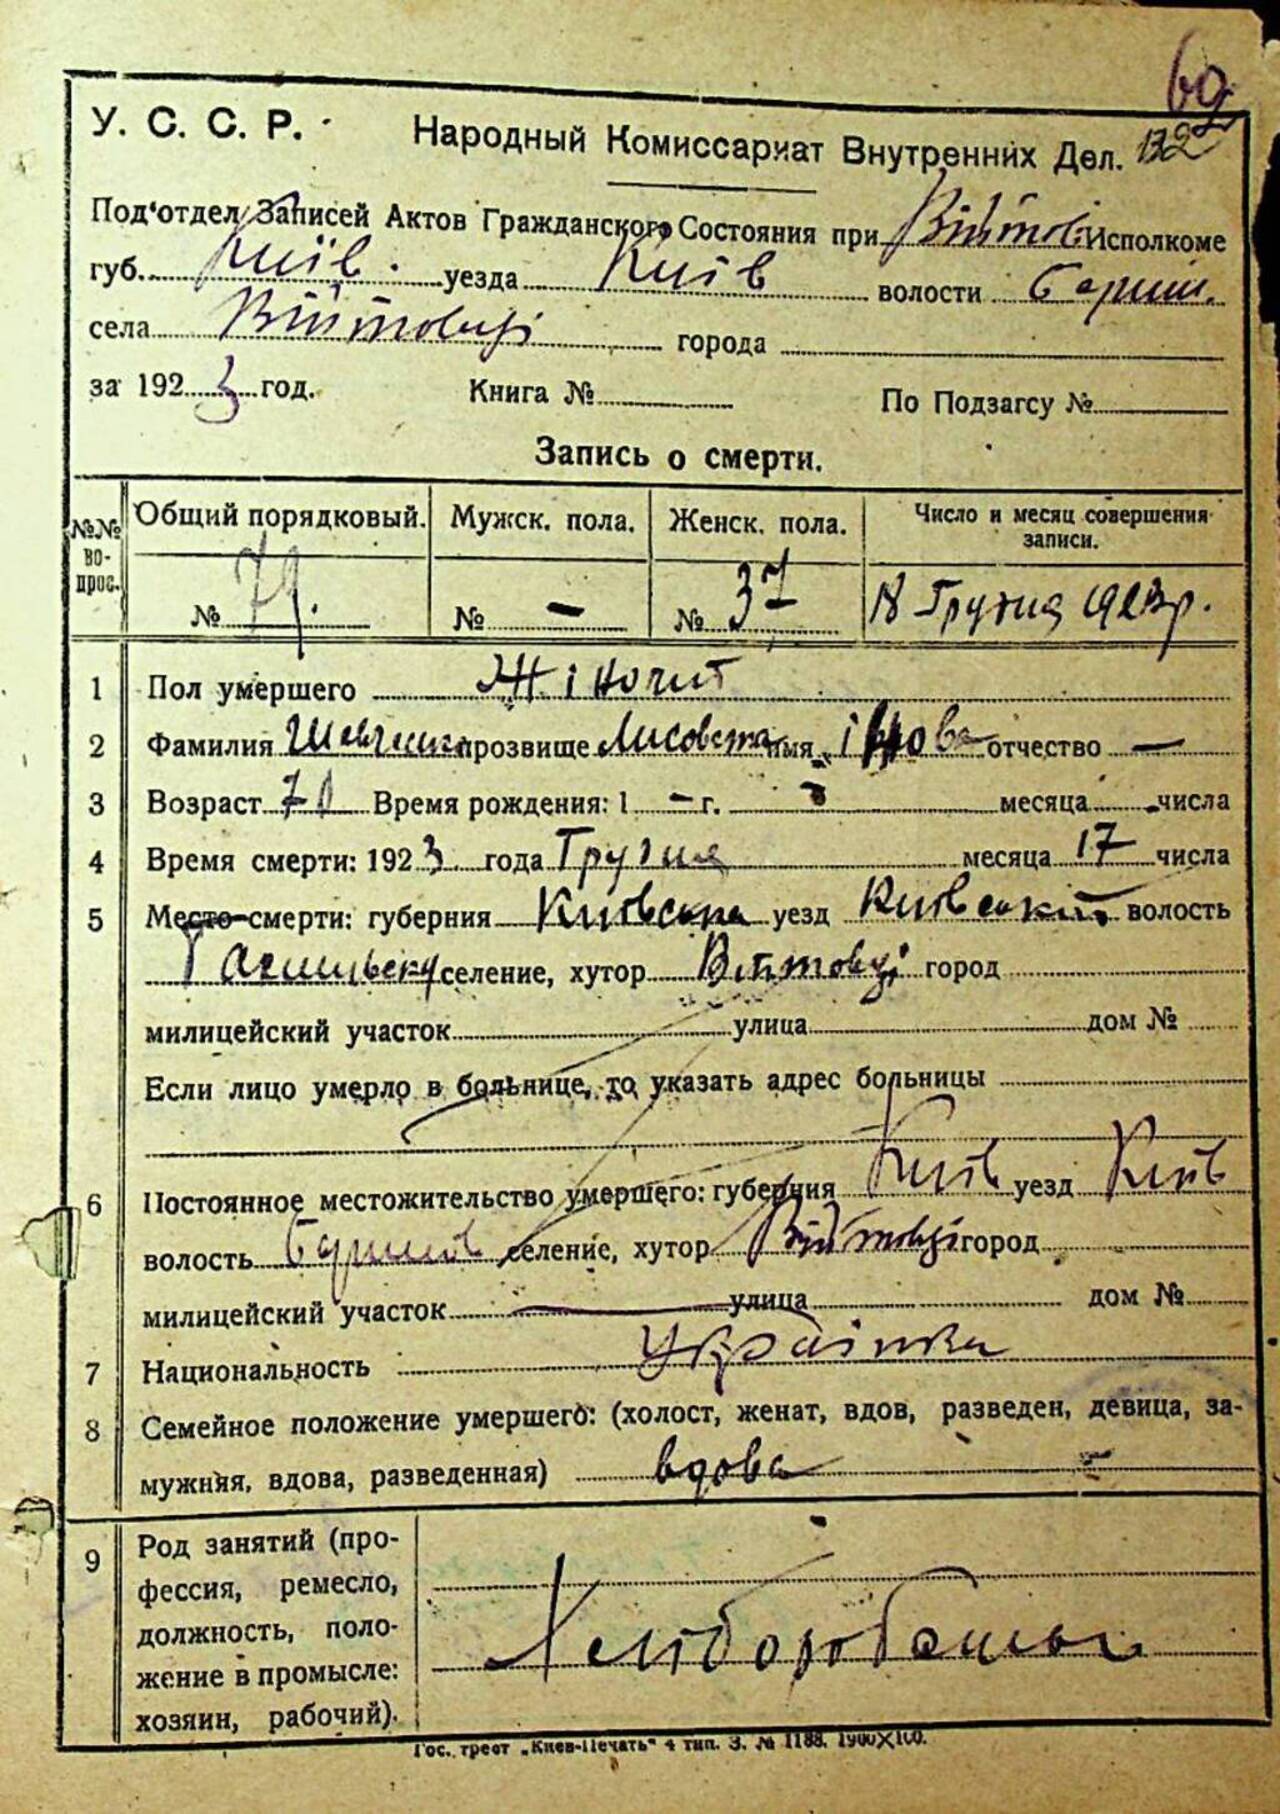 69
132
У. С. С. Р. Народный Комиссариат Внутренних Дел.
Под'отдел Записей Актов Гражданского Состояния при Війтов. Исполкоме
губ. Київ. уезда Київ волости
села Війтовці города
за 1923 год. Книга № По Подзагсу №
Запись о смерти.
№№ вопрос. Общий порядковый. Мужск. пола. Женск. пола. Число и месяц совершения записи.
№ 79. № — № 37 18 Грудня 1923 р.
1 Пол умершего Жіночит
2 Фамилия Шевченко прозвище имя отчество —
3 Возраст 70 Время рождения: 1 — г. месяца числа
4 Время смерти: 1923 года Грудня месяца 17 числа
5 Место смерти: губерния Київська уезд Київський волость
селение, хутор Війтовці город
милицейский участок улица дом №
Если лицо умерло в больнице, то указать адрес больницы
6 Постоянное местожительство умершего: губерния Київ уезд Київ
волость селение, хутор Війтовці город
милицейский участок улица дом №
7 Национальность Українка
8 Семейное положение умершего: (холост, женат, вдов, разведен, девица, за-
мужняя, вдова, разведенная) вдова
9 Род занятий (про-
фессия, ремесло,
должность, поло-
жение в промысле:
хозяин, рабочий).
Хліборобство
Гос. трест „Киев-Печать" 4 тип. З. № 1188. 1900×100.